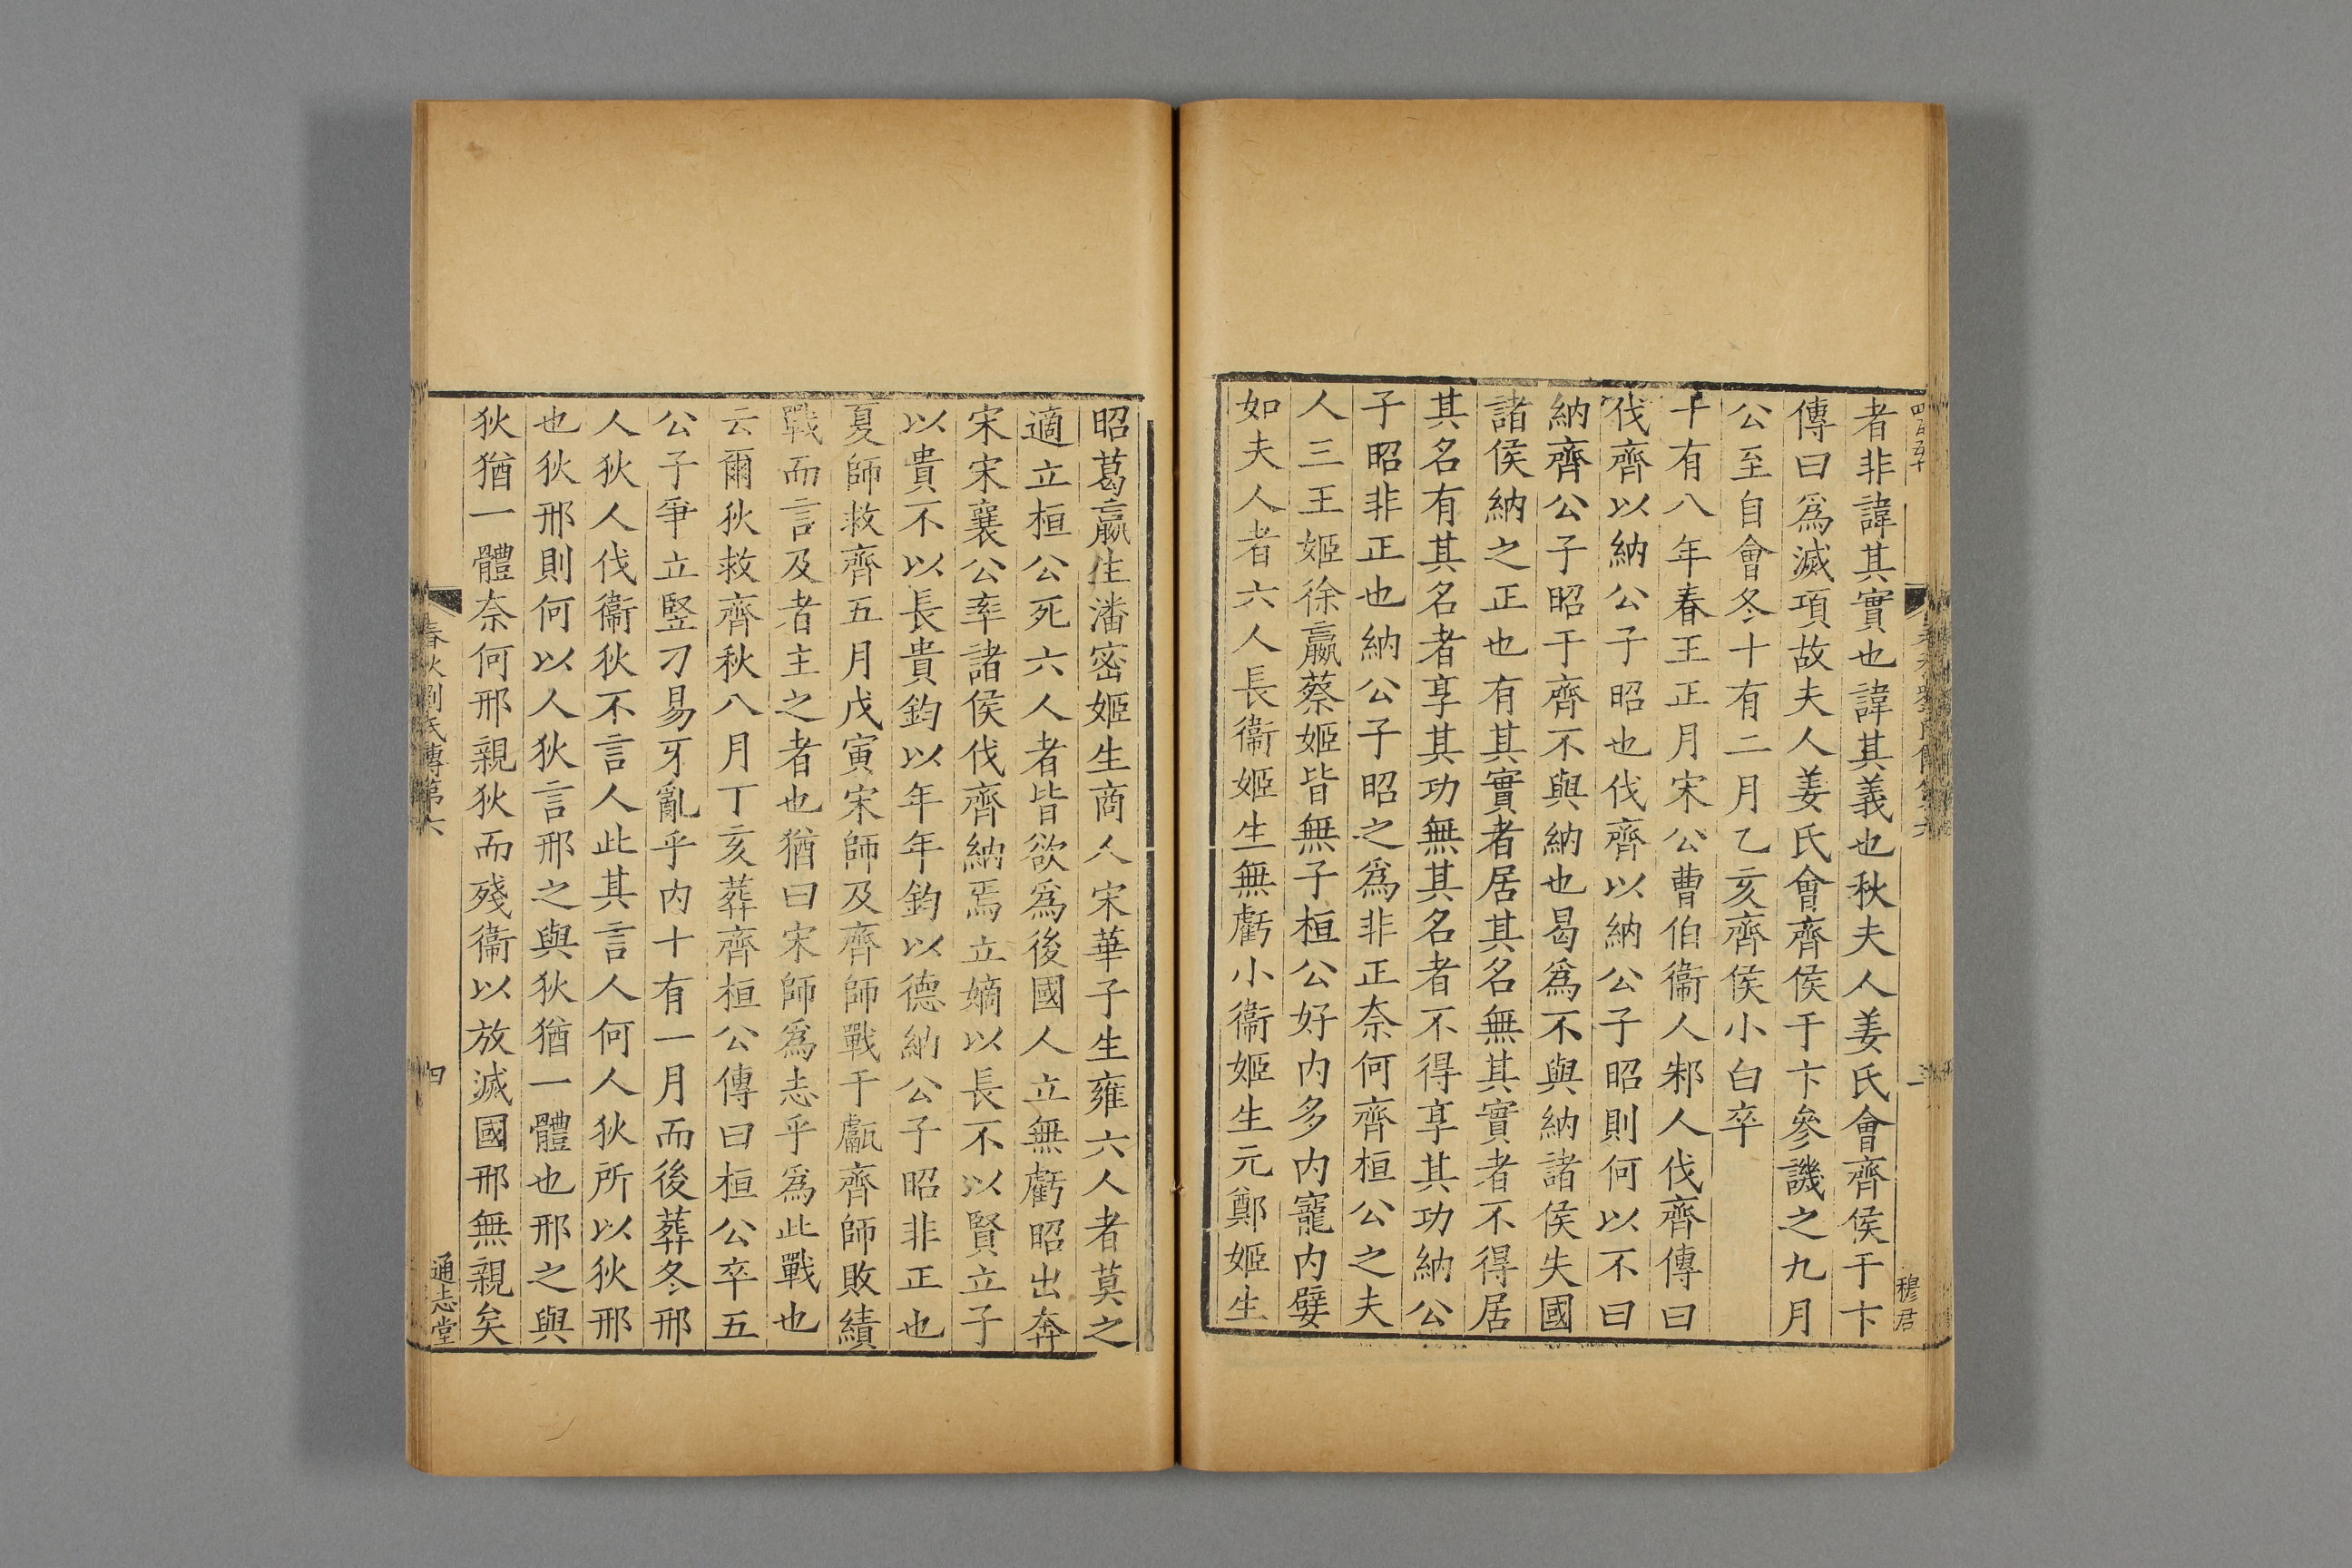 四百五十
春秋劉氏傳第六
穆君
者非諱其實也諱其義也秋夫人姜氏會齊侯于卞
傳曰爲滅項故夫人姜氏會齊侯于卞參譏之九月
公至自會冬十有二月乙亥齊侯小白卒
十有八年春王正月宋公曹伯衞人邾人伐齊傳曰
伐齊以納公子昭也伐齊以納公子昭則何以不曰
納齊公子昭于齊不與納也曷爲不與納諸侯失國
諸侯納之正也有其實者居其名無其實者不得居
其名有其名者享其功無其名者不得享其功納公
子昭非正也納公子昭之爲非正奈何齊桓公之夫
人三王姬徐嬴蔡姬皆無子桓公好内多内寵内嬖
如夫人者六人長衞姬生無虧小衞姬生元鄭姬生
昭葛嬴生潘密姬生商人宋華子生雍六人者莫之
適立桓公死六人者皆欲爲後國人立無虧昭出奔
宋宋襄公率諸侯伐齊納焉立嫡以長不以賢立子
以貴不以長貴鈞以年年鈞以德納公子昭非正也
夏師救齊五月戊寅宋師及齊師戰于甗齊師敗績
戰而言及者主之者也猶曰宋師爲志乎爲此戰也
云爾狄救齊秋八月丁亥葬齊桓公傳曰桓公卒五
公子爭立竪刁易牙亂乎内十有一月而後葬冬邢
人狄人伐衞狄不言人此其言人何人狄所以狄邢
也狄邢則何以人狄言邢之與狄猶一體也邢之與
狄猶一體奈何邢親狄而殘衞以放滅國邢無親矣
春秋劉氏傳第六
四
通志堂